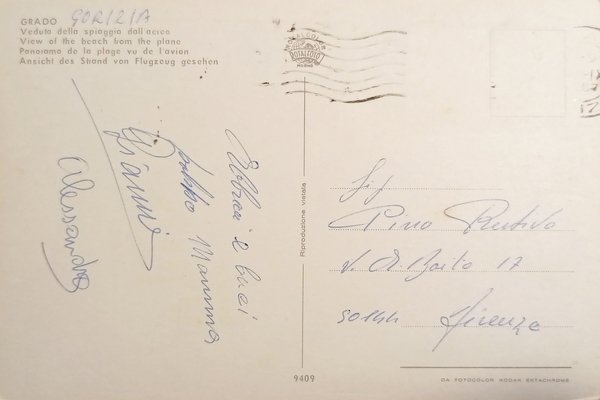 GRADO GORIZIA
Veduta della spiaggia dall'aereo
View of the beach from the plane
Panorama de la plage vu de l'avion
Ansicht des Strand von Flugzeug gesehen
ROTALCOLOR
MILANO
Abbracci e baci
babbo Mamma
Gianni
Alessandra
Riproduzione vietata
Sig
Pino
V. A. Boito 17
50144 Firenze
9409
DA FOTOCOLOR KODAK EKTACHROME